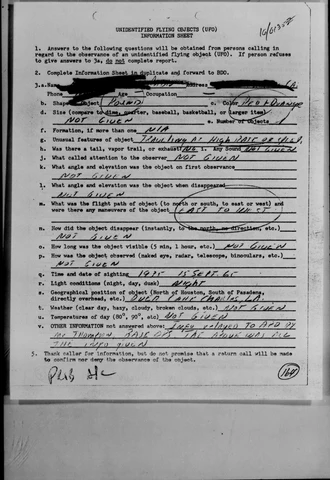 UNIDENTIFIED FLYING OBJECTS (UFO)
INFORMATION SHEET
1. Answers to the following questions will be obtained from persons calling in
regard to the observance of an unidentified flying object (UFO). If person refuses
to give answers to 3a, do not complete report.
2. Complete Information Sheet in duplicate and forward to BDO.
3.a. Name Address
Phone Age Occupation
b. Shape of object ROUND c. Color RED & ORANGE
d. Size (compare to dime, quarter, baseball, basketball, or larger item)
NOT GIVEN e. Number of Objects 1
f. Formation, if more than one N/A
g. Unusual features of object TRAVELING AT HIGH RATE OF
h. Was there a tail, vapor trail, or exhaust i. Any Sound NOT GIVEN
j. What called attention to the observer NOT GIVEN
k. What angle and elevation was the object on first observance
NOT GIVEN
l. What angle and elevation was the object when disappeared
NOT GIVEN
m. What was the flight path of object (to north or south, to east or west) and
were there any maneuvers of the object EAST TO WEST
n. How did the object disappear (instantly, to the north, no direction, etc)
NOT GIVEN
o. How long was the object visible (5 min, 1 hour, etc.) NOT GIVEN
p. How was the object observed (naked eye, radar, telescope, binoculars, etc)
NOT GIVEN
q. Time and date of sighting 15 SEPT 65
r. Light conditions (night, day, dusk) NIGHT
s. Geographical position of object (North of Houston, South of Pasadena,
directly overhead, etc.) OVER LAKE CHARLES, LA.
t. Weather (clear day, hazy, cloudy, broken clouds, etc.) NOT GIVEN
u. Temperatures of day (80°, 90°, etc) NOT GIVEN
v. OTHER INFORMATION not answered above: INFO RELAYED TO BY
MR THOMPSON BASE OPS THE ABOVE WAS ALL
THE INFO GIVEN
3. Thank caller for information, but do not promise that a return call will be made
to confirm or deny the observance of the object.